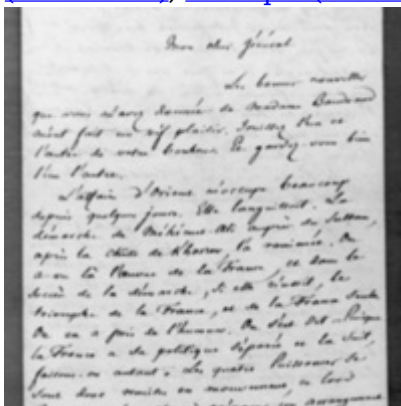 Mon cher Général
Les bonnes nouvelles
que vous m'avez données de Madame Baudrand
m'ont fait un vif plaisir. Jouissez l'un et
l'autre de votre bonheur. Et gardez-vous bien
l'un l'autre.
L'affaire d'Orient m'occupe beaucoup
depuis quelques jours. Elle languissait. La
démarche de Méhémet-Ali auprès du Sultan,
après la chute de Khosrew, l'a ranimée. On
a vu là l'œuvre de la France, et dans le
succès de la démarche, si elle réussit, le
triomphe de la France, et de la France seule.
On en a pris de l'humeur. On s'est dit : Puisque
la France a sa politique séparée et la suit,
faisons-en autant. Les quatre Puissances se
sont donc remises en mouvement, et lord
arrangement